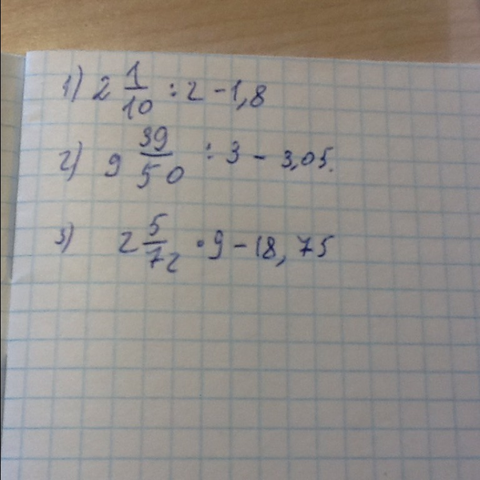 1) 2 1/10 : 2 - 1,8
2) 9 39/50 : 3 - 3,05.
3) 2 5/72 · 9 - 18,75